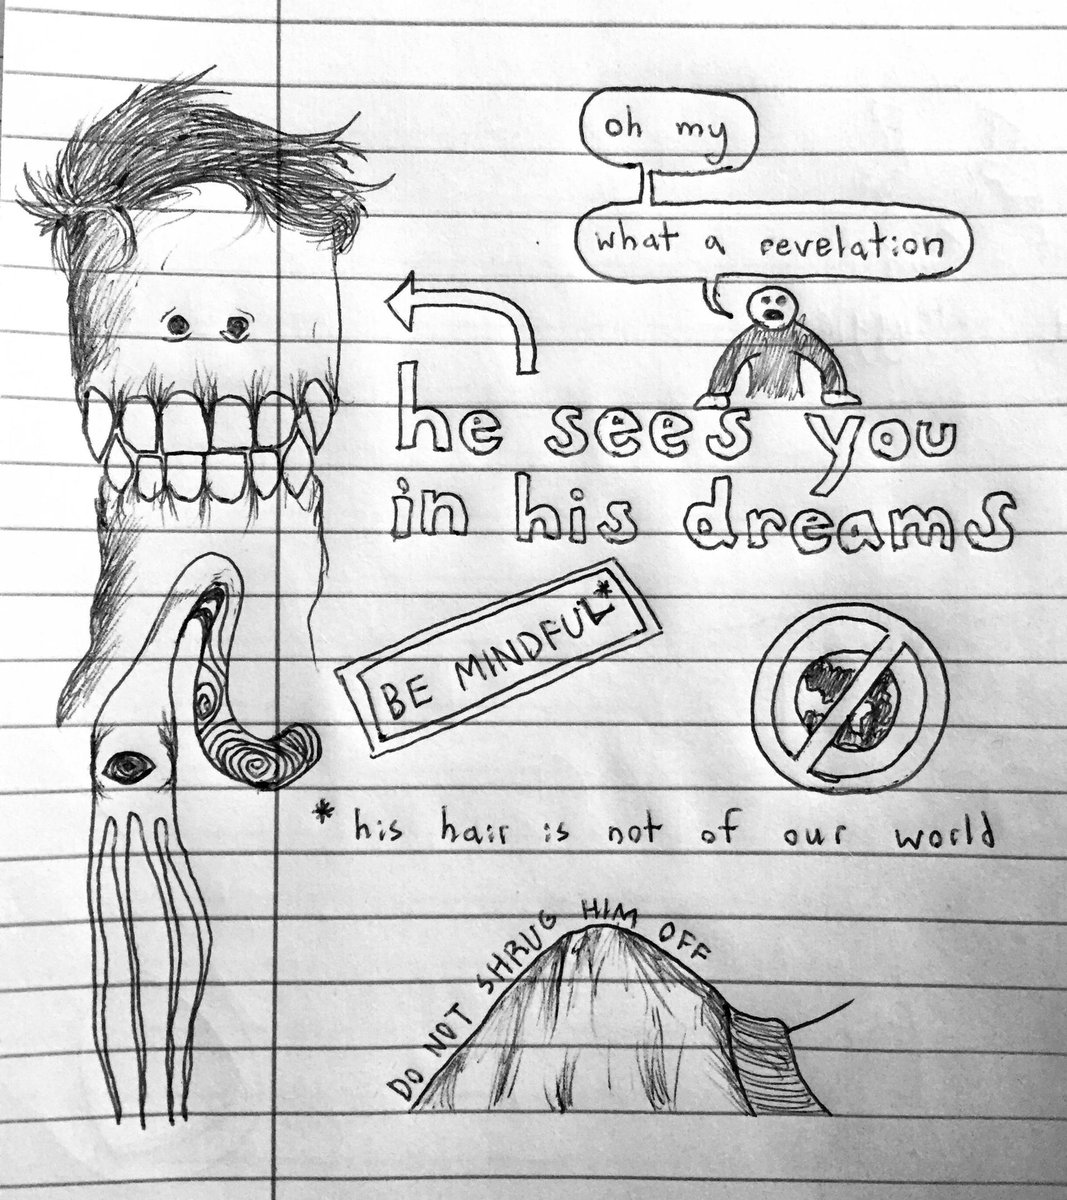 oh my
what a revelation
he sees you
in his dreams
BE MINDFUL*
* his hair is not of our world
DO NOT SHRUG HIM OFF